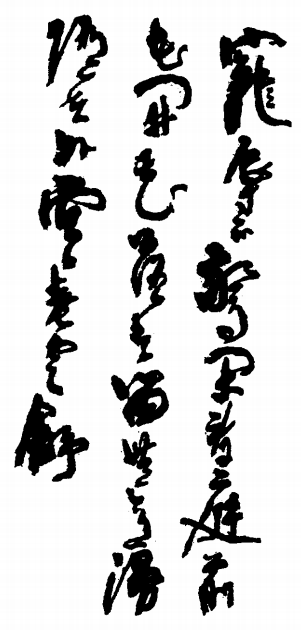 寵辱不驚閑看庭前
花開花落去留無意漫
隨天外雲卷雲舒